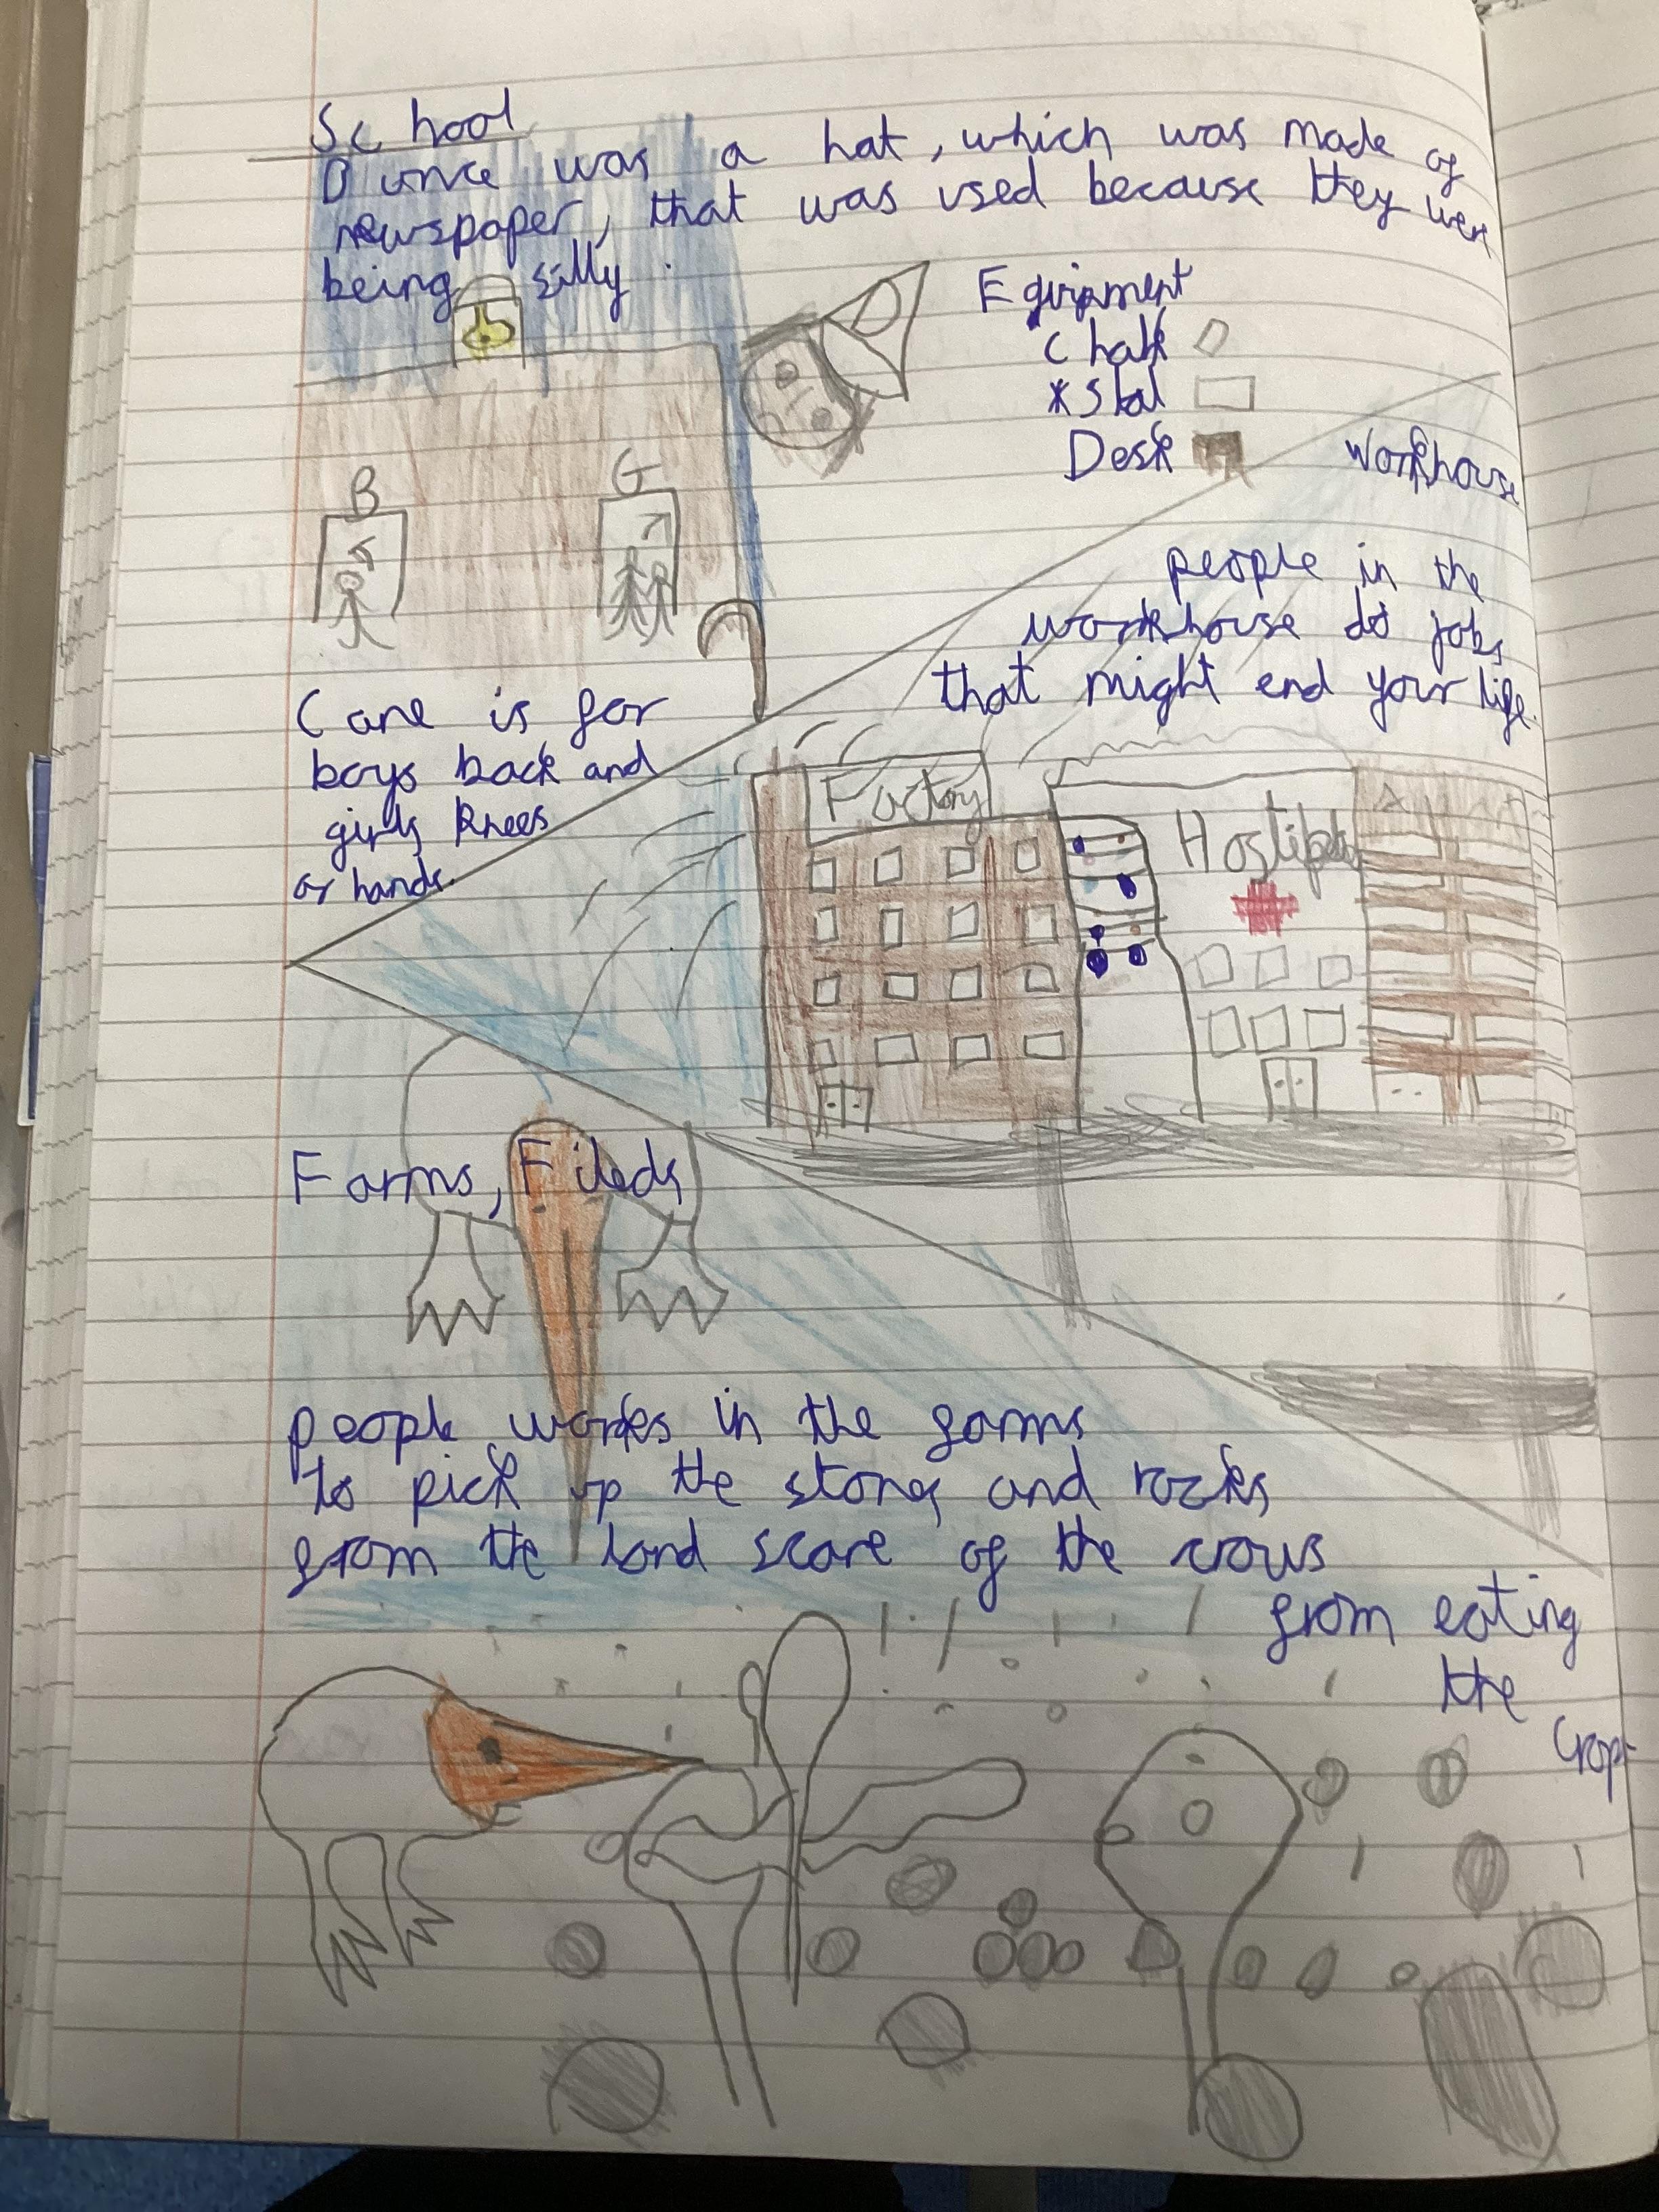 School
Dunce was a hat, which was made of
newspaper, that was used because they were
being silly.
Equipment
Chalk
*Slat
Desk
B
G
Cane is for
boys back and
girls knees
or hands.
Workhouse
people in the
workhouse do jobs
that might end your life.
Factory
Hostipal
Farms, Fileds
people works in the farms
to pick up the stones and rocks
from the land scare of the crows
from eating
the
crops